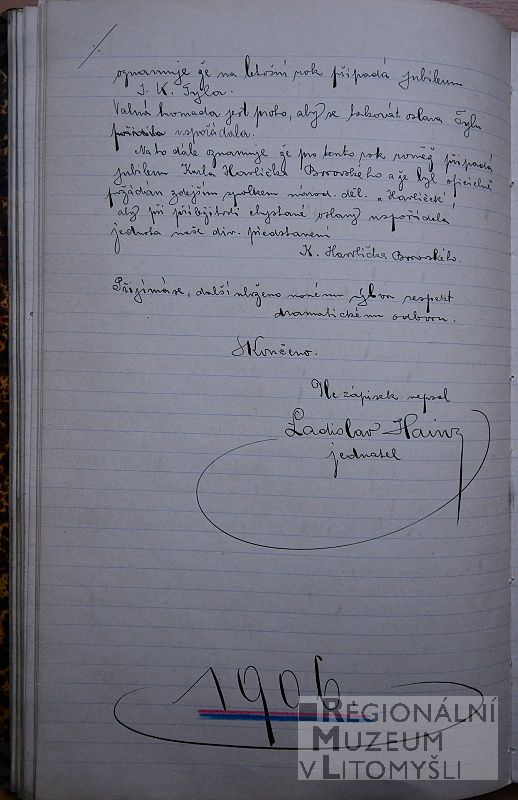 oznamuje že na letošní rok připadá jubileum
J. K. Tyla.
Valná hromada jest proto, aby se takovát oslava Tyla
pořádala uspořádala.
Na to dále oznamuje že pro tento rok rovněž připadá
jubileum Karla Havlíčka Borovského a že byl oficielně
požádán zdejším spolkem národ. děl. „Havlíček",
aby při příležitosti chystané oslavy uspořádala
jednota naše div. představení
K. Havlíčka Borovského.
Přijímá se, další uloženo novému výboru respekt
dramatickému odboru.
Skončeno.
zápisek nepsal
Ladislav Hainz
jednatel
1906.
REGIONÁLNÍ
MUZEUM
V LITOMYŠLI